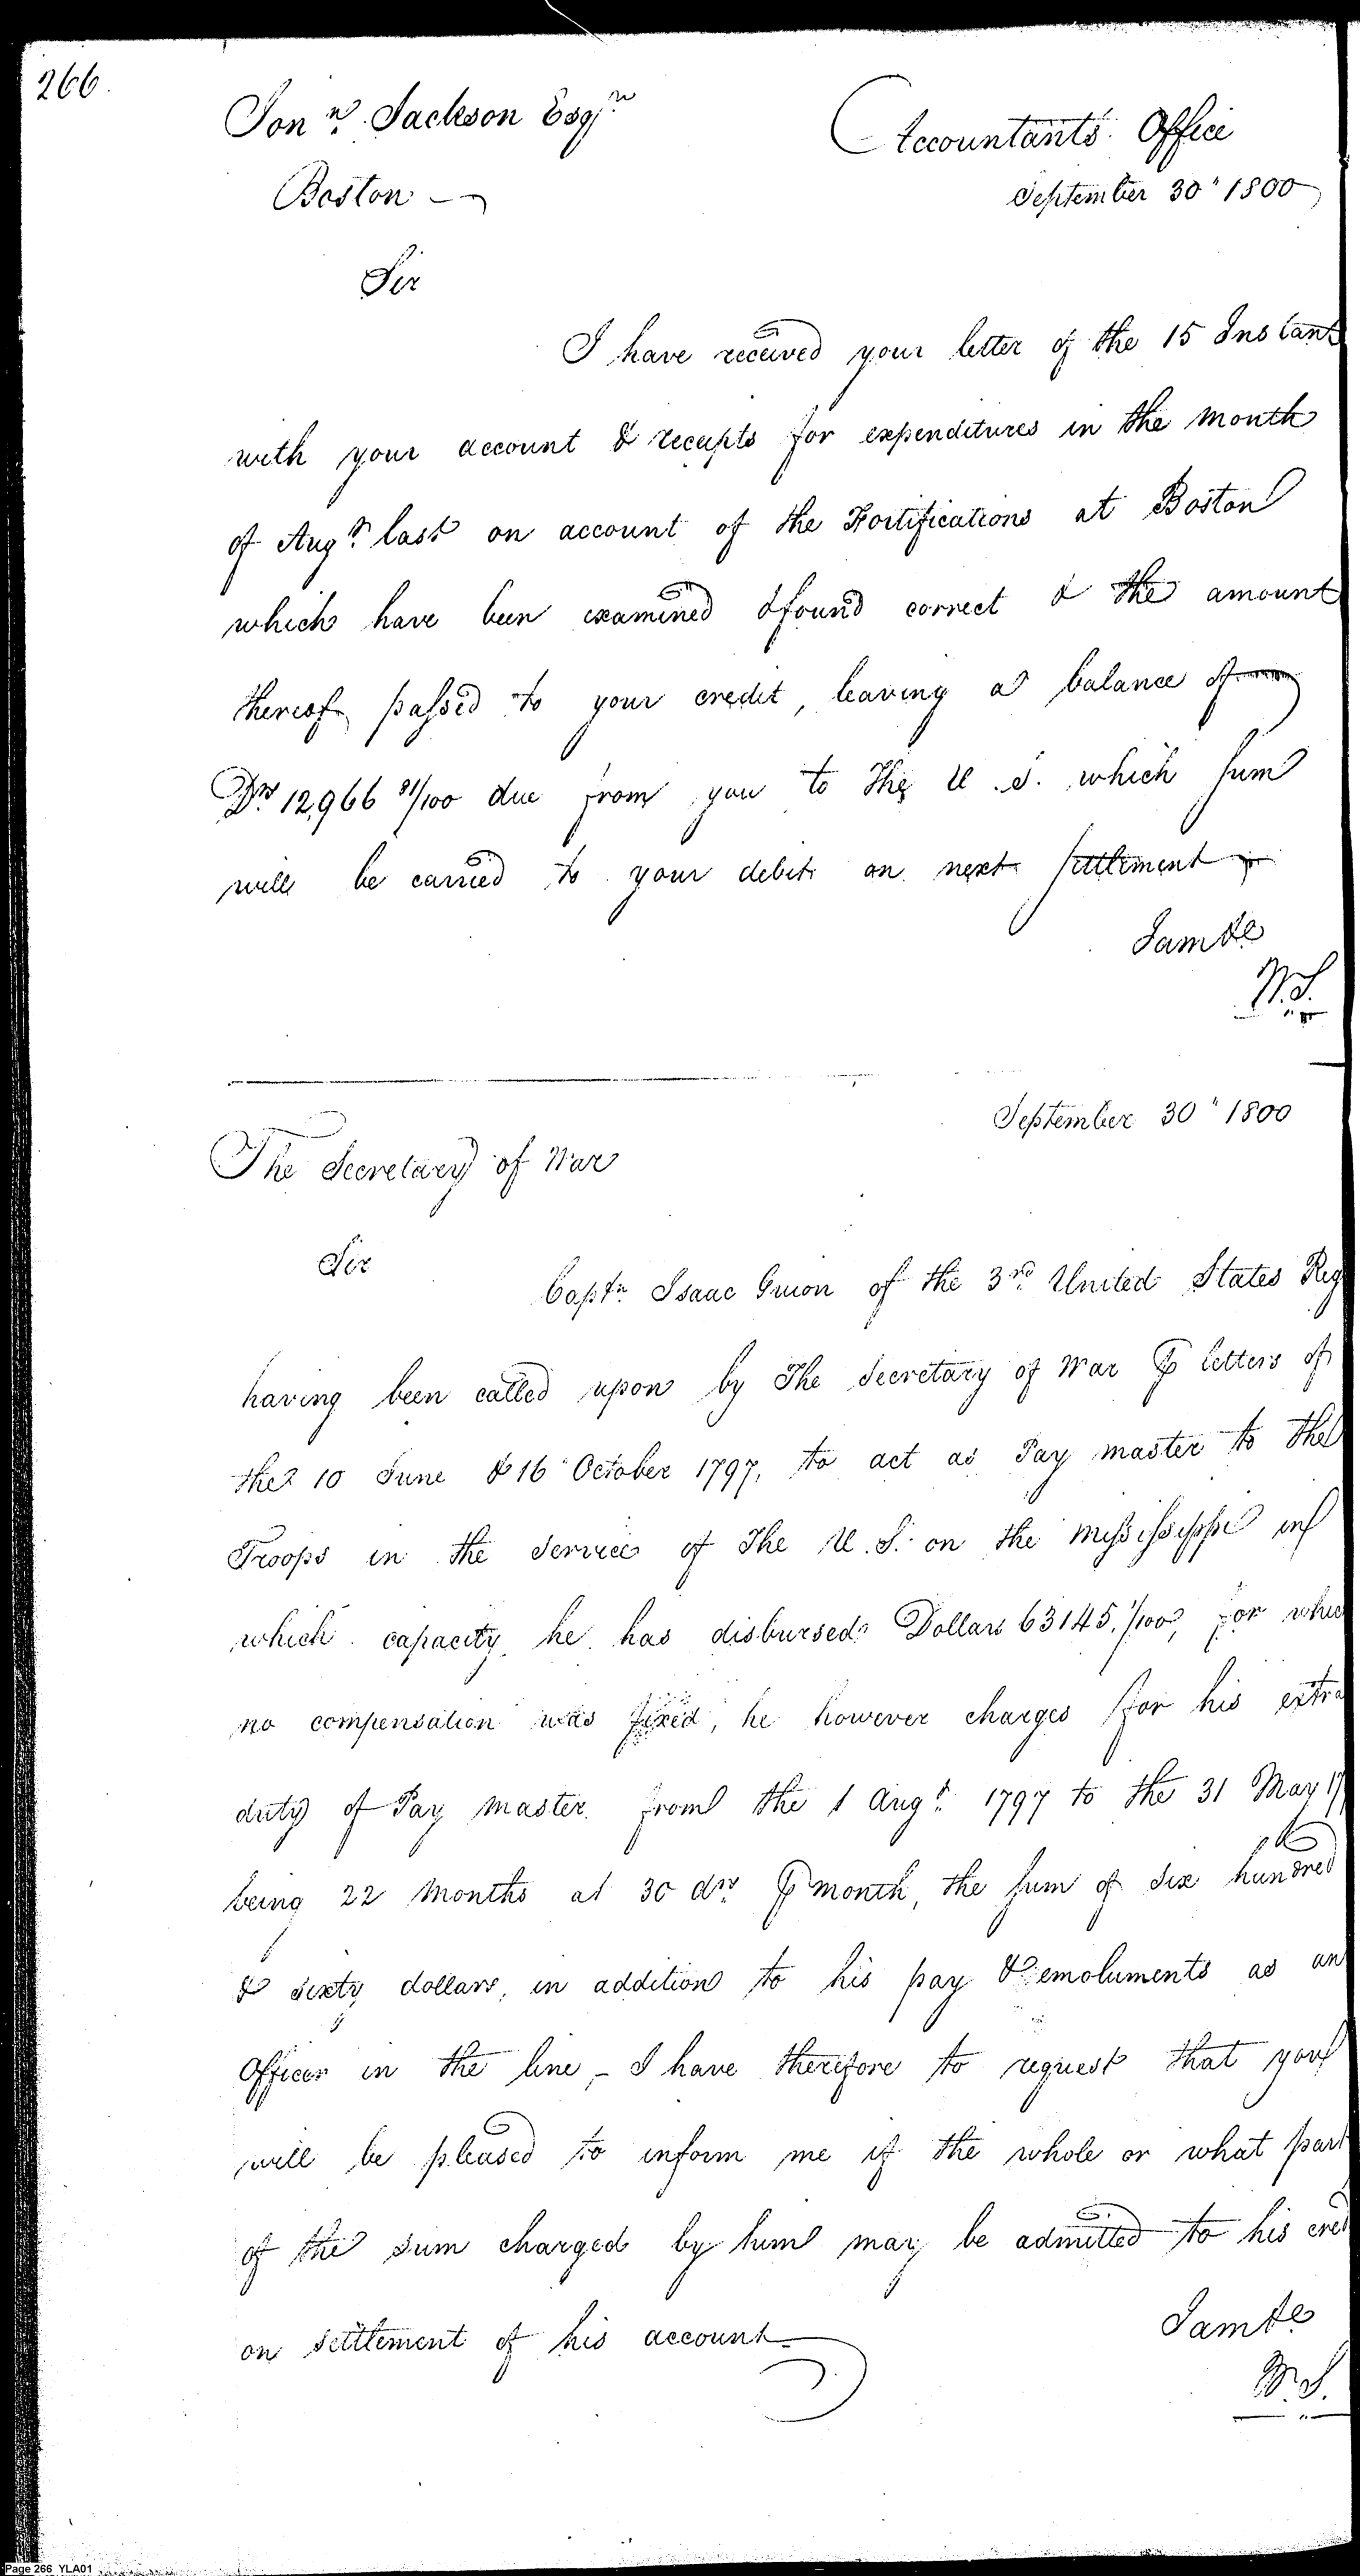 266.
Jonn. Jackson Esqr
Accountants Office
Boston
September 30" 1800
Sir
I have received your letter of the 15 Instant
with your account & receipts for expenditures in the Month
of Augt. last on account of the Fortifications at Boston
which have been examined & found correct & the amount
thereof passed to your credit, leaving a balance of
Drs. 12,966 81/100 due from you to The U.S. which sum
will be carried to your debit on next settlement
I am &c
W.S.
September 30" 1800
The Secretary of War
Sir
Captn. Isaac Guion of the 3rd. United States Reg
having been called upon by The Secretary of War ⅌ letters of
the 10 June & 16 October 1797, to act as Pay master to the
Troops in the service of The U.S. on the Mississippi in
which capacity he has disbursed Dollars 63145. 1/100, for whic
no compensation was fixed, he however charges for his extra
duty of Pay master from the 1 Augt. 1797 to the 31 May 17
being 22 Months at 30 drs. ⅌ month, the sum of six hundred
& sixty dollars, in addition to his pay & emoluments as an
Officer in the line, - I have therefore to request that you
will be pleased to inform me if the whole or what part
of the sum charged by him may be admitted to his cred
on settlement of his account
I am &c
W.S.
Page 266 YLA01